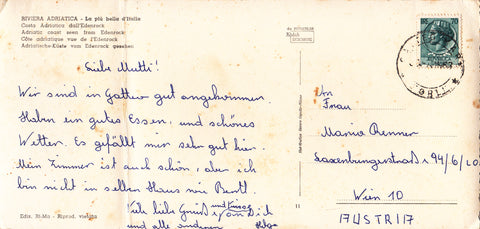 RIVIERA ADRIATICA - La più bella d'Italia
Costa Adriatica dall'Edenrock
Adriatic coast seen from Edenrock
Côte adriatique vue de l'Edenrock
Adriatische-Küste vom Edenrock gesehen
Liebe Mutti!
Wir sind in Gatteo gut angekommen.
Haben ein gutes Essen, und schönes
Wetter. Es gefällt mir sehr gut hier.
Mein Zimmer ist auch schön, aber ich
bin nicht in selben Haus wie Bertl.
Viele liebe Grüße und Küsse an Dich
und alle anderen Helga
Ediz. Bi-Ma - Riprod. vietata
Kodak
11
Frau
Maria Renner
Laxenburgerstraße 94/6/20
Wien 10
17USTR117